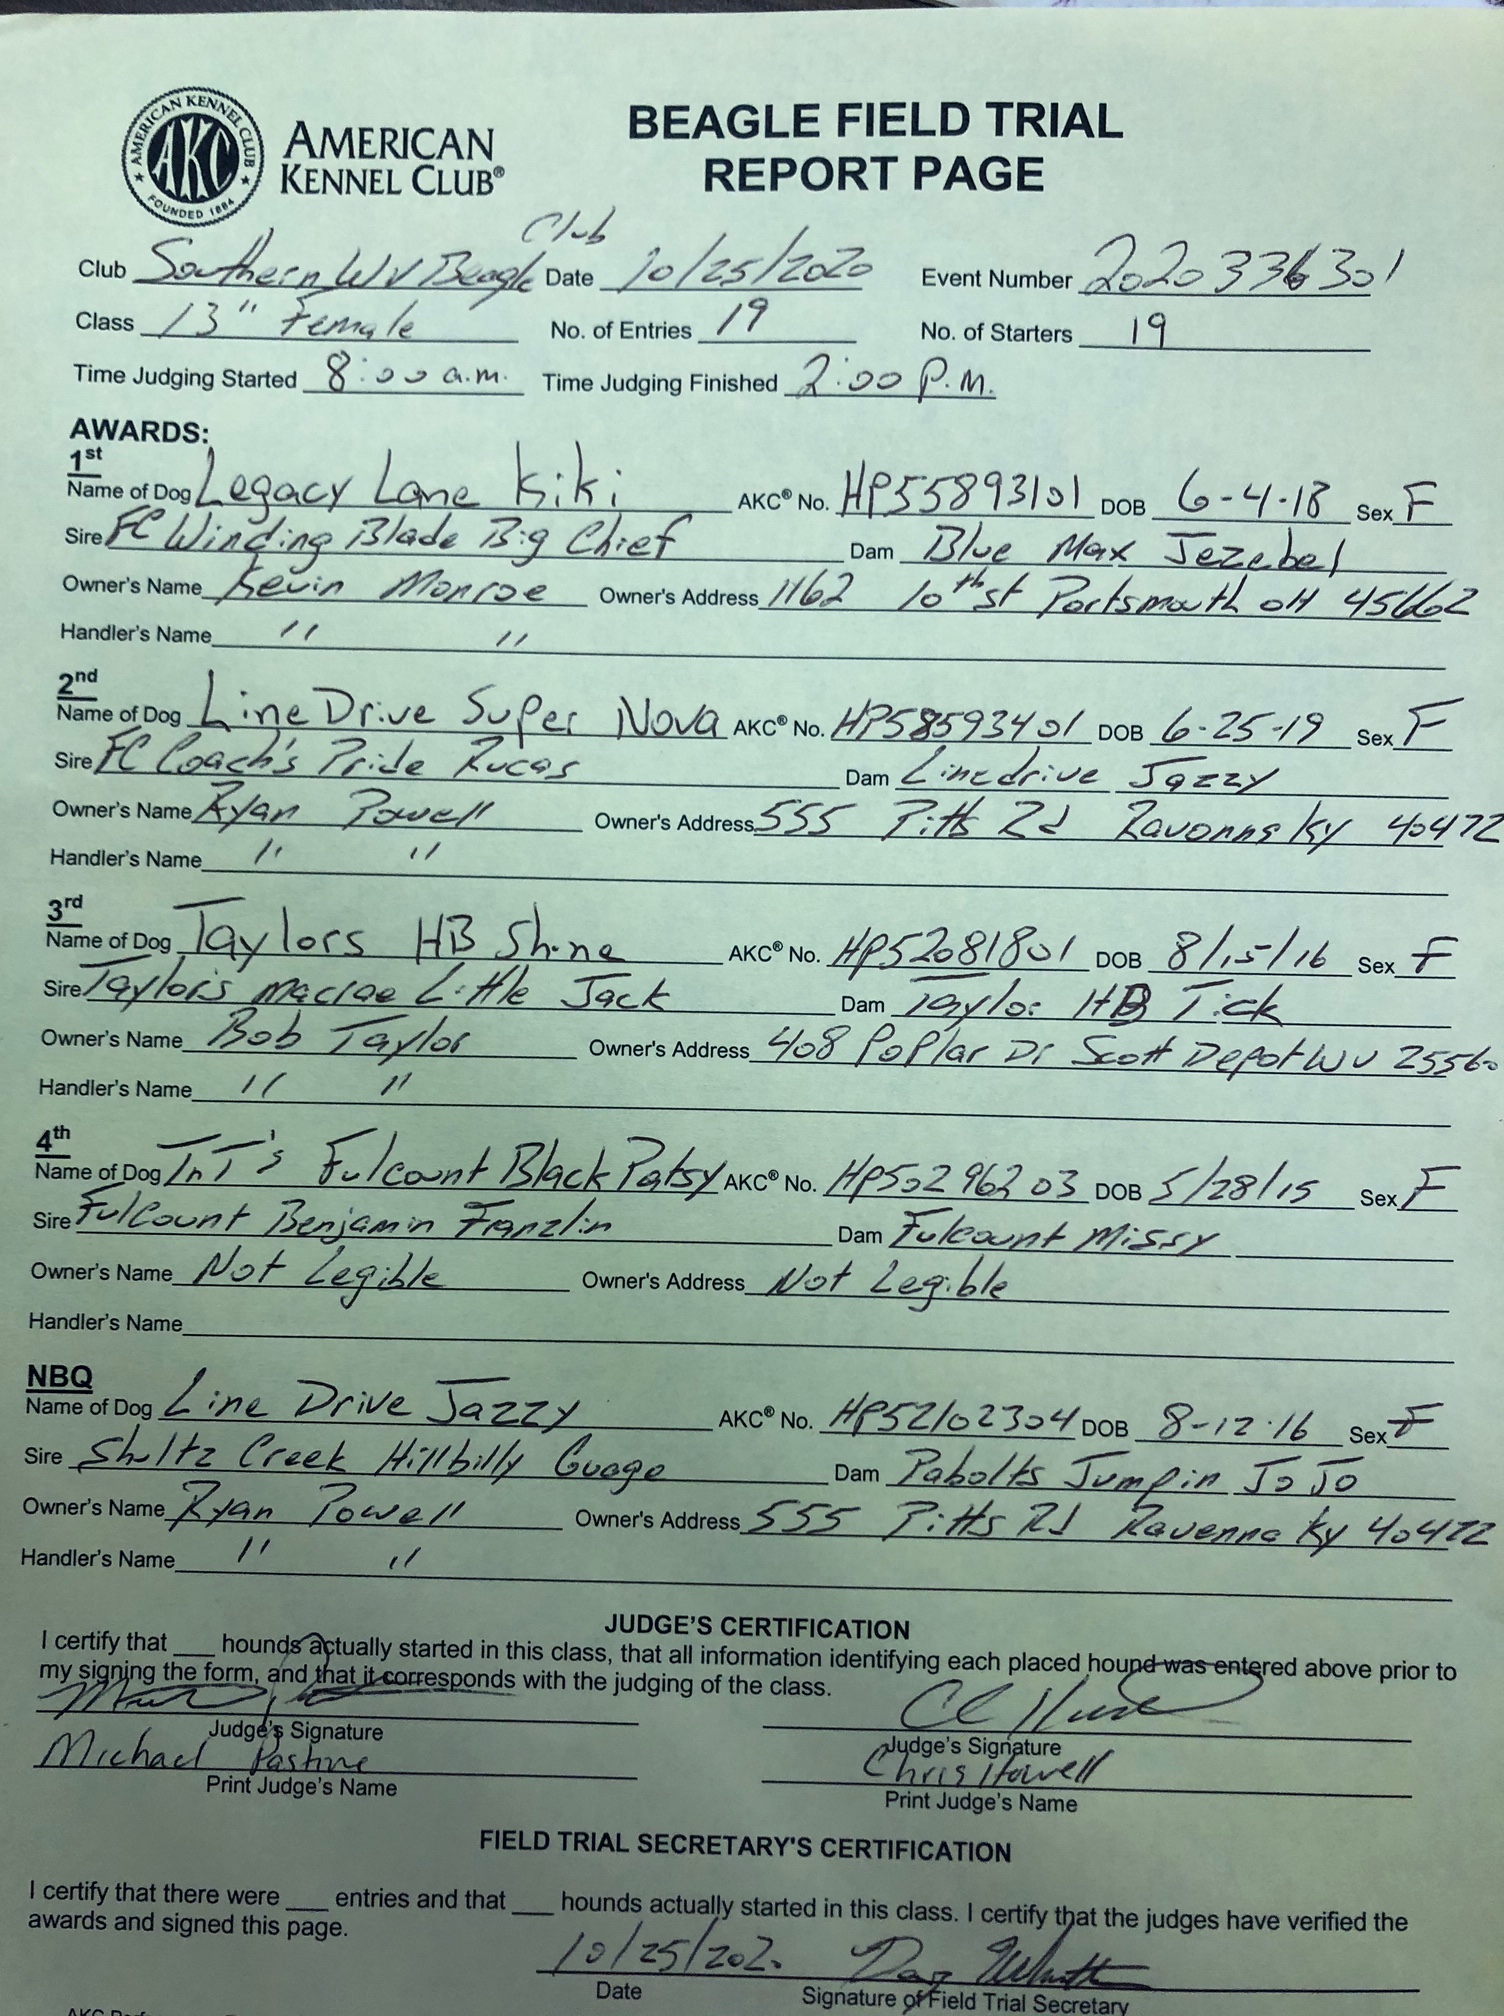 AMERICAN KENNEL CLUB
AKC
FOUNDED 1884
AMERICAN
KENNEL CLUB®
BEAGLE FIELD TRIAL
REPORT PAGE
Club Southern WV Beagle Club Date 10/25/2020 Event Number 2020336301
Class 13" Female No. of Entries 19 No. of Starters 19
Time Judging Started 8:00 a.m. Time Judging Finished 2:00 P.M.
AWARDS:
1st
Name of Dog Legacy Lane Kiki AKC® No. HP55893101 DOB 6-4-18 Sex F
Sire FC Winding Blade Big Chief Dam Blue Max Jezebel
Owner's Name Kevin Monroe Owner's Address 1162 10th st Portsmouth OH 45662
Handler's Name " "
2nd
Name of Dog Line Drive Super Nova AKC® No. HP58593401 DOB 6-25-19 Sex F
Sire FC Coach's Pride Rucas Dam Linedrive Jazzy
Owner's Name Ryan Powell Owner's Address 555 Pitts Rd Ravonna Ky 40472
Handler's Name " "
3rd
Name of Dog Taylors HB Shine AKC® No. HP52081801 DOB 8/15/16 Sex F
Sire Taylors macrae Little Jack Dam Taylor HB Tick
Owner's Name Bob Taylor Owner's Address 408 Poplar Dr Scott Depot WV 25560
Handler's Name " "
4th
Name of Dog TnT's Fulcount Black Patsy AKC® No. HP50296203 DOB 5/28/15 Sex F
Sire Fulcount Benjamin Franzlin Dam Fulcount Missy
Owner's Name Not Legible Owner's Address Not Legible
Handler's Name
NBQ
Name of Dog Line Drive Jazzy AKC® No. HP52102304 DOB 8-12-16 Sex F
Sire Shultz Creek Hillbilly Guage Dam Pabolts Jumpin JoJo
Owner's Name Ryan Powell Owner's Address 555 Pitts Rd Ravenna Ky 40472
Handler's Name " "
JUDGE'S CERTIFICATION
I certify that ___ hounds actually started in this class, that all information identifying each placed hound was entered above prior to
my signing the form, and that it corresponds with the judging of the class.
Judge's Signature Judge's Signature
Michael Pastine Chris Howell
Print Judge's Name Print Judge's Name
FIELD TRIAL SECRETARY'S CERTIFICATION
I certify that there were ___ entries and that ___ hounds actually started in this class. I certify that the judges have verified the
awards and signed this page.
10/25/2020
Date Signature of Field Trial Secretary